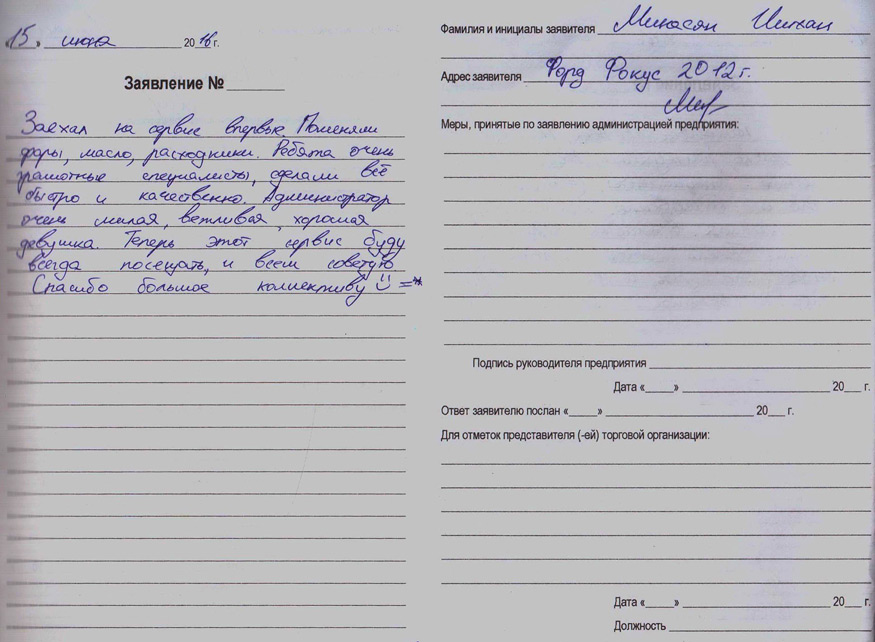 «15» июня 2016 г.
Заявление № ________
Заехал на сервис впервые. Поменяли
фары, масло, расходники. Ребята очень
грамотные специалисты, сделали всё
быстро и качественно. Администратор
очень милая, вежливая, хорошая
девушка. Теперь этот сервис буду
всегда посещать, и всем советую.
Спасибо большое коллективу =*
Фамилия и инициалы заявителя Минасян
Адрес заявителя Форд Фокус 2012 г.
Меры, принятые по заявлению администрацией предприятия:
Подпись руководителя предприятия
Дата «____» ____ 20__ г.
Ответ заявителю послан «____» ____ 20__ г.
Для отметок представителя (-ей) торговой организации:
Дата «____» ____ 20__ г.
Должность